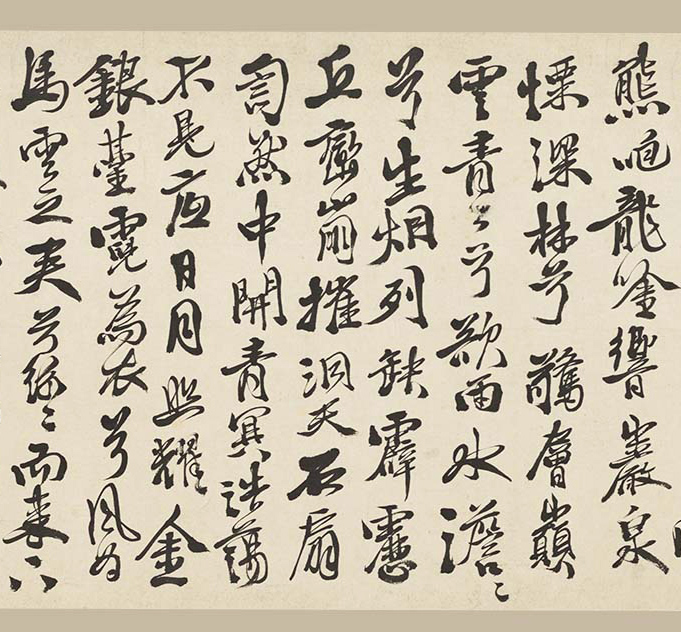 熊咆龍唫響巖泉
慄深林兮驚層巔
雲青々兮欲雨水澹々
兮生烟列缺霹靂
丘巒崩摧洞天石扇
訇然中開青冥浩蕩
不見底日月照耀金
銀臺霓為衣兮風為
馬雲之君兮紛々而来下